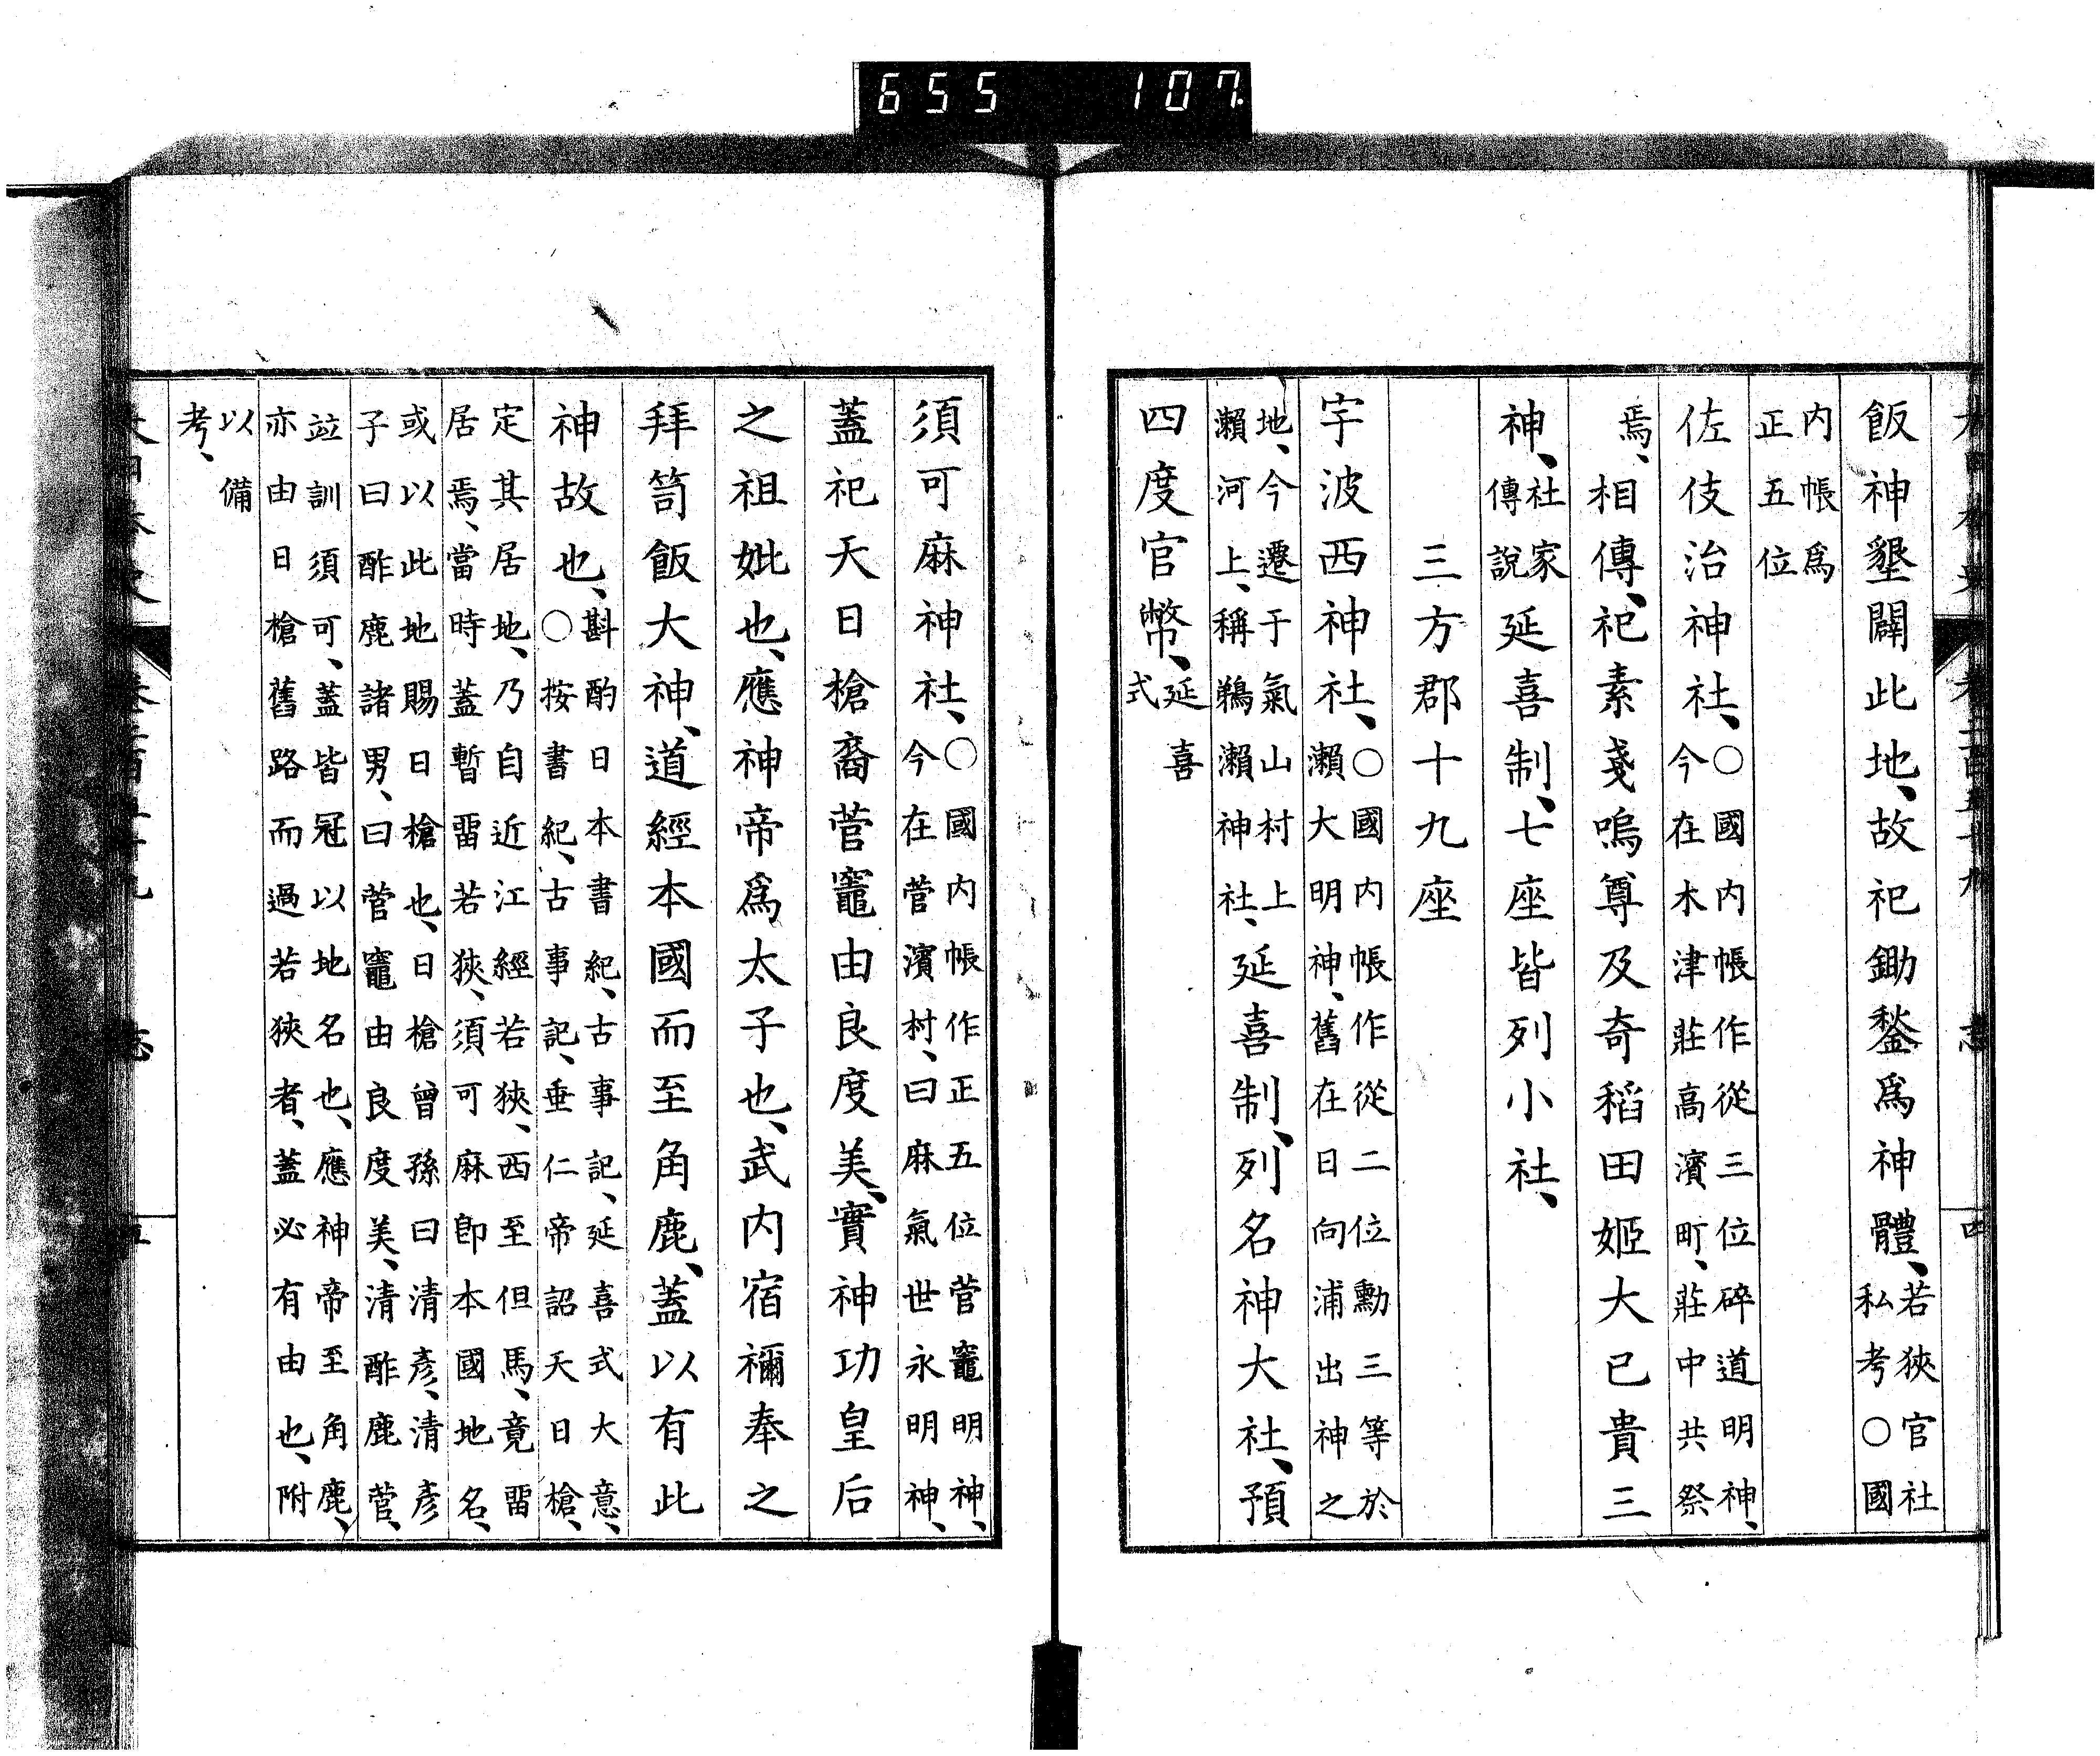 655 107
飯神墾闢此地、故祀鋤鍫爲神體、若狹官社私考○國
内帳爲正五位
佐伎治神社、○國内帳作從三位碎道明神、今在木津莊高濱町、莊中共祭
焉、相傳、祀素戔嗚尊及奇稻田姬大已貴三
神、社家傳說延喜制、七座皆列小社、
三方郡十九座
宇波西神社、○國内帳作從二位勳三等於瀨大明神、舊在日向浦出神之
地、今遷于氣山村上瀨河上、稱鵜瀨神社、延喜制、列名神大社、預
四度官幣、延喜式
須可麻神社、○國内帳作正五位菅竈明神、今在菅濱村、曰麻氣世永明神、
蓋祀天日槍裔菅竈由良度美、實神功皇后
之祖妣也、應神帝爲太子也、武内宿禰奉之
拜笥飯大神、道經本國而至角鹿、蓋以有此
神故也、斟酌日本書紀、古事記、延喜式大意、○按書紀、古事記、垂仁帝詔天日槍、
定其居地、乃自近江經若狹、西至但馬、竟畱居焉、當時蓋暫畱若狹、須可麻卽本國地名、
或以此地賜日槍也、日槍曾孫曰清彥、清彥子曰酢鹿諸男、曰菅竈由良度美、清酢鹿菅、
竝訓須可、蓋皆冠以地名也、應神帝至角鹿、亦由日槍舊路而過若狹者、蓋必有由也、附
以備考、
志
五